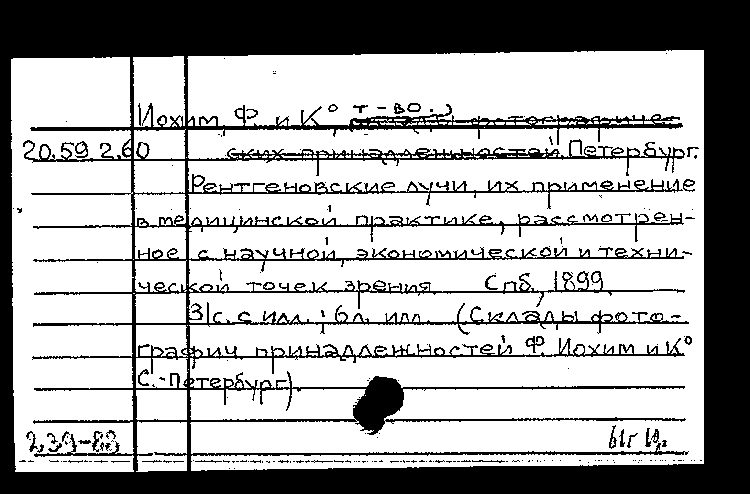 Иохим, Ф. и К°, т-во., склады фотографичес-
20.59.2.60 ских принадлежностей, Петербург.
Рентгеновские лучи, их применение
в медицинской практике, рассмотрен-
ное с научной, экономической и техни-
ческой точек зрения. Спб., 1899.
31с. с илл.; 6л. илл. (Склады фото-
графич. принадлежностей Ф. Иохим и К°
С.-Петербург).
239-88